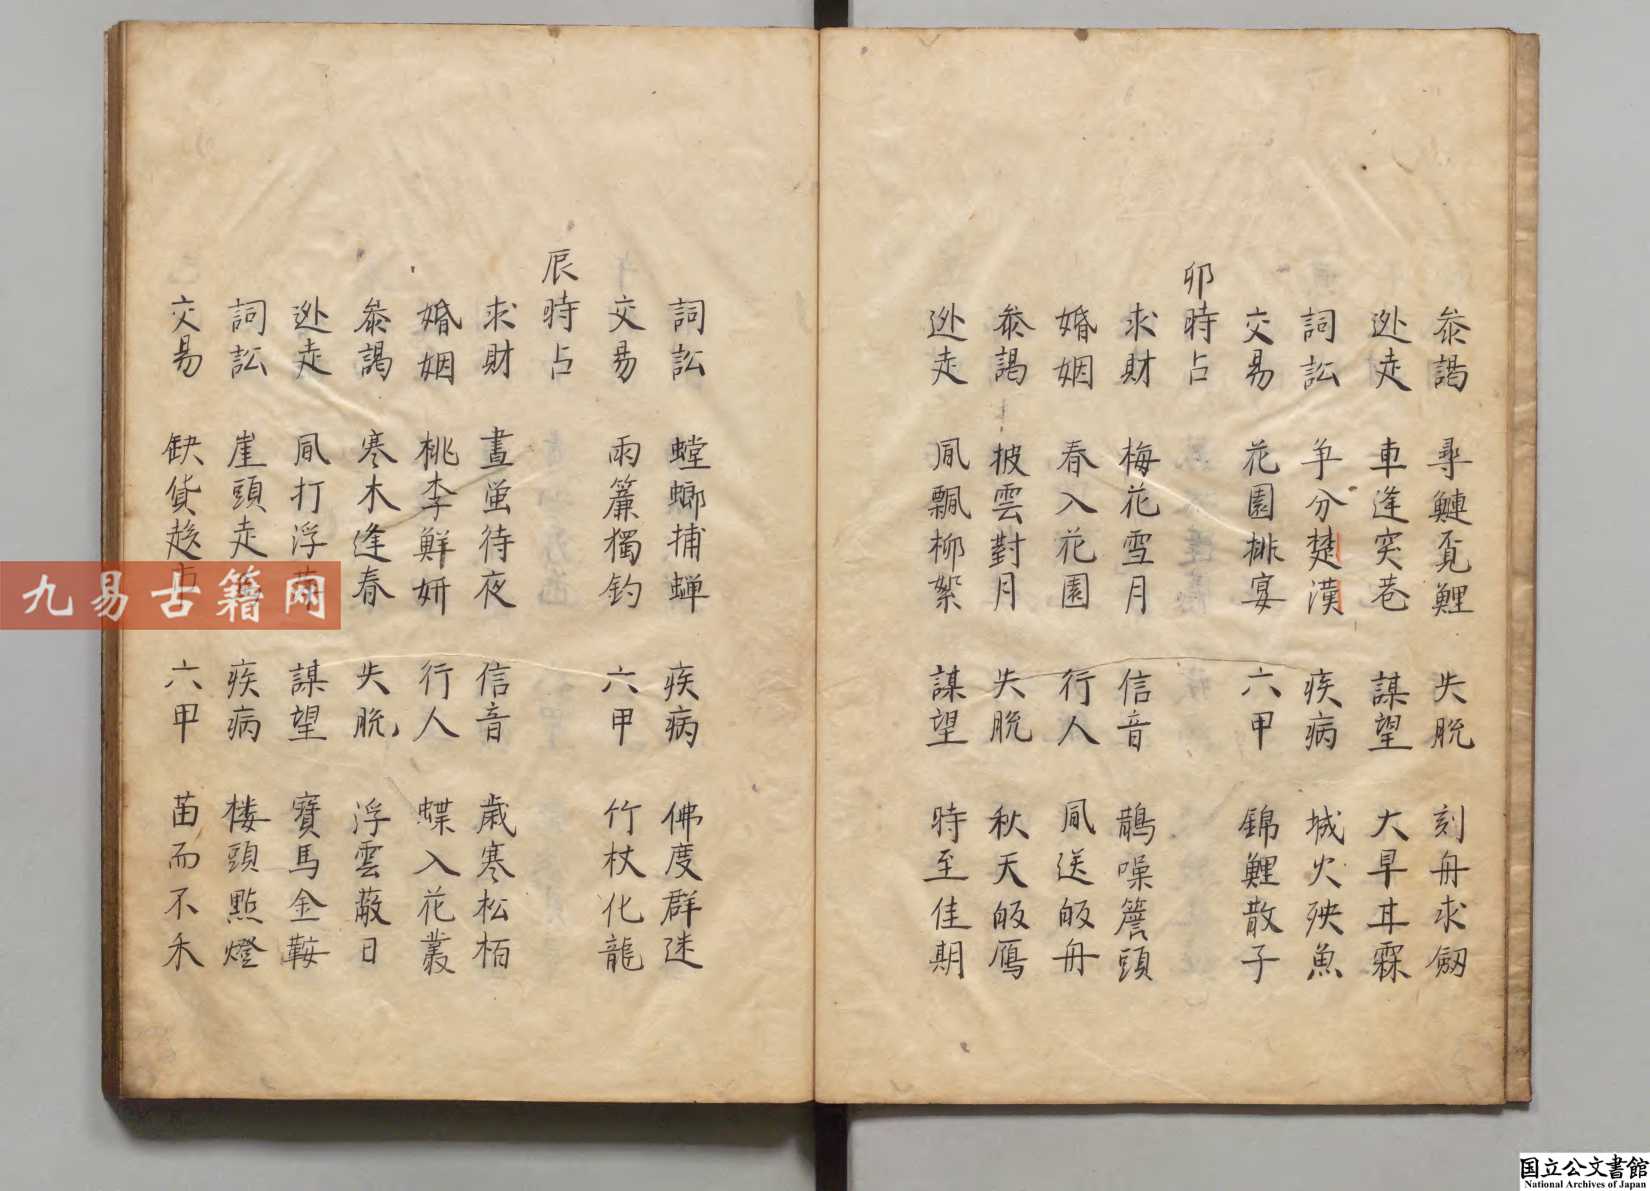 叅謁 尋鰱覓鯉 失脫 刻舟求劔
迯走 車逢突巷 謀望 大旱甘霖
詞訟 争分楚漢 疾病 城火殃魚
交易 花園排宴 六甲 錦鯉散子
卯時占
求財 梅花雪月 信音 鵲噪簷頭
婚姻 春入花園 行人 風送皈舟
叅謁 披雲對月 失脫 秋天皈鴈
迯走 風飄柳絮 謀望 時至佳期
詞訟 螳螂捕蟬 疾病 佛度群迷
交易 雨簾獨釣 六甲 竹杖化龍
辰時占
求財 晝蛍待夜 信音 歲寒松栢
婚姻 桃李鮮妍 行人 蝶入花叢
叅謁 寒木逢春 失脫 浮雲蔽日
迯走 風打浮 謀望 寶馬金鞍
詞訟 崖頭走 疾病 楼頭點燈
交易 缺貨趂 六甲 苗而不禾
九易古籍网
国立公文書館
National Archives of Japan